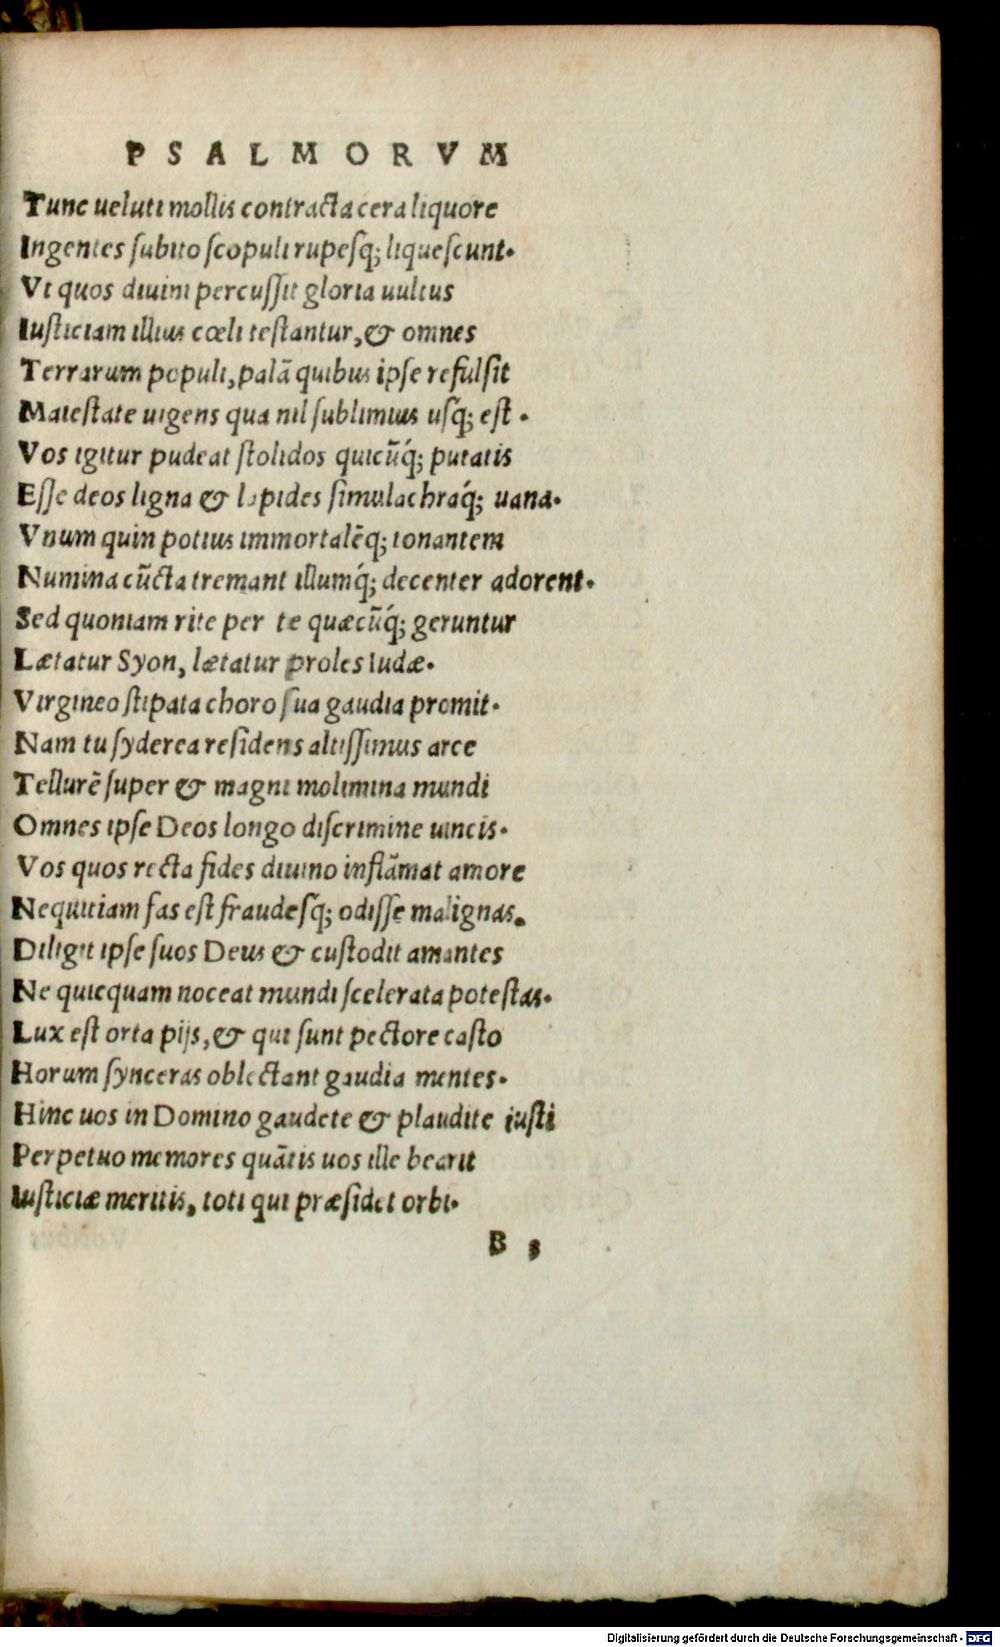 PSALMORVM
Tunc ueluti mollis contracta cera liquore
Ingentes subito scopuli rupesq; liquescunt.
Vt quos diuini percussit gloria uultus
Iusticiam illius cœli testantur, & omnes
Terrarum populi, palā quibus ipse refulsit
Maiestate uigens qua nil sublimius usq; est.
Vos igitur pudeat stolidos quicūq́; putatis
Esse deos ligna & lapides simulachraq́; uana.
Vnum quin potius immortalēq; tonantem
Numina cūcta tremant illumq́; decenter adorent.
Sed quoniam rite per te quæcūq́; geruntur
Lætatur Syon, lætatur proles Iudæ.
Virgineo stipata choro sua gaudia promit.
Nam tu syderea residens altissimus arce
Tellurē super & magni molimina mundi
Omnes ipse Deos longo discrimine uincis.
Vos quos recta fides diuino inflāmat amore
Nequitiam fas est fraudesq; odisse malignas.
Diligit ipse suos Deus & custodit amantes
Ne quicquam noceat mundi scelerata potestas.
Lux est orta pijs, & qui sunt pectore casto
Horum synceras oblectant gaudia mentes.
Hinc uos in Domino gaudete & plaudite iusti
Perpetuo memores quātis uos ille bearit
Iusticiæ meritis, toti qui præsidet orbi.
B
Digitalisierung gefördert durch die Deutsche Forschungsgemeinschaft - DFG